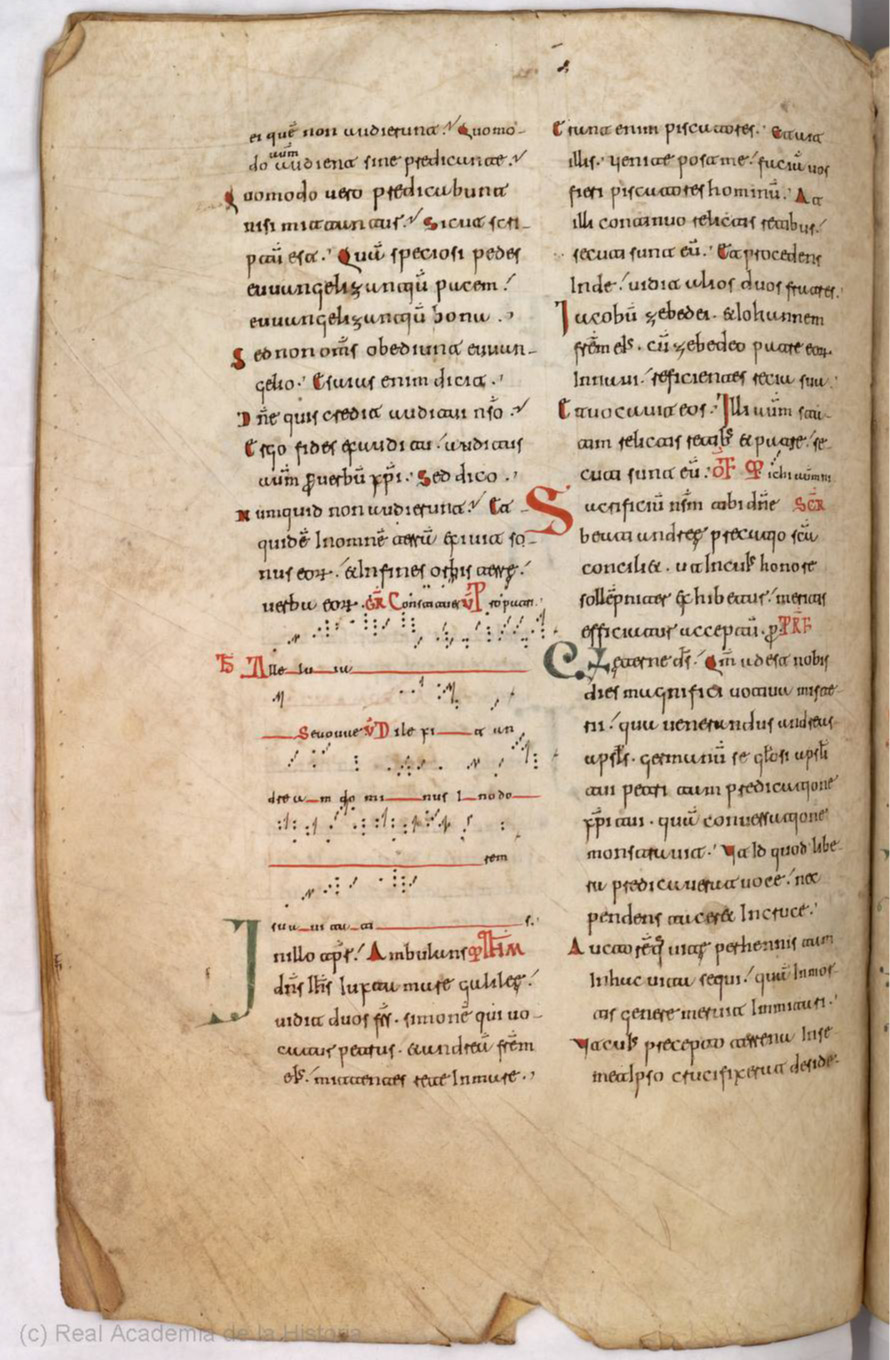 ei quē non audierunt? Quomo-
do aūm audient sine predicante?
Quomodo uero predicabunt
nisi mittantur? Sicut scri-
ptū est. Quā speciosi pedes
euuangelizantiū pacem!
euuangelizantiū bona.
Sed non oms obediunt euuan-
gelio. Esaias enim dicit.
Dn̄e quis credidit auditui nr̄o?
Ergo fides ex auditu! auditus
autm̄ ꝑ uerbū xp̄i. Sed dico.
Numquid non audierunt? Et
quidē In omnē terrā exiuit so-
nus eoꝝ. & In fines orbis terrę!
uerba eoꝝ. GR̄ Constitues V̄ pro patri
Alle lu ia
Seuouae V̄ Dile xi t an
dre a m do mi nus I n odo
rem
sua ui ta ti s.
In illo tp̄r! Ambulans
dn̄s Ih̄s Iuxta mare galileę!
uidit duos fr̄s. simonē qui uo-
catur petrus. & andreā fr̄em
eīs. mittentes rete In mare.
Erant enim piscatores. Et ait
illis. uenite post me! faciā uos
fieri piscatores hominū. At
illi continuo relictis retibus!
secuti sunt eū. Et procedens
Inde! uidit alios duos fratres.
Iacobū zebedei. & Iohannem
fr̄em eīs. cū zebedeo patre eoꝝ
In naui! reficientes recia sua.
Et uocauit eos. Illi autm̄ stati-
tim relictis retib; & patre! se-
cuti sunt eū. OF̄ Michi autem
Sacrificiū nr̄m tibi dn̄e SCR̄
beati andreę precatio scā
conciliet. ut In cuīs honore
sollēpniter exhibetur! meritis
efficiatur acceptū. ꝑ PRF̄
Et ęterne dī. Qm̄ adest nobis
dies magnifici uotiua miste-
rii! qua uenerandus andreas
apsl̄s. germanū se gl̄osi apsl̄i
tui petri tam predicatione
xp̄i tui. quā conuersatione
monstrauit. Vt Id quod libe-
ra predicauerat uoce! nec
pendens taceret In cruce.
Auctorēq; uitę perhennis tam
In hac uita sequi! quā In mor-
tis genere meruit Immitari.
Vt cuīs precepto terrena In se-
met Ipso crucifixerat deside-
(c) Real Academia de la Historia